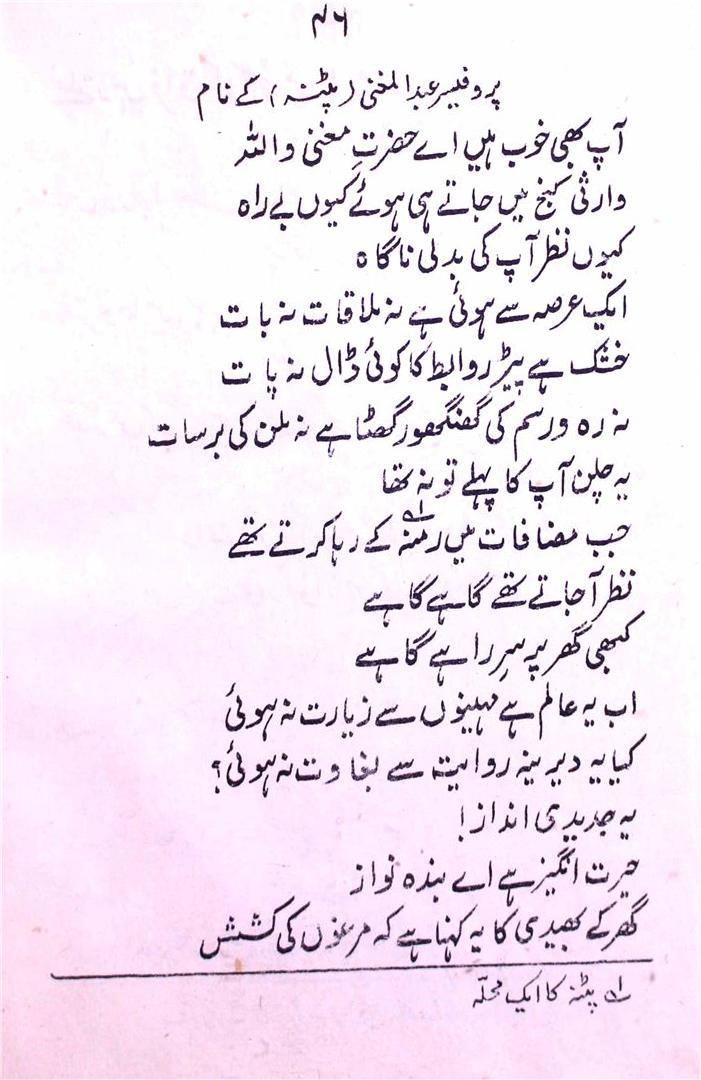 ۴۶
پروفیسر عبدالمغنی (پٹنہ) کے نام
آپ بھی خوب ہیں اے حضرتِ مغنی واللہ
وارثی کنج میں جاتے ہی ہوئے کیوں بے راہ
کیوں نظر آپ کی بدلی ناگاہ
ایک عرصہ سے ہوئی ہے نہ ملاقات نہ بات
خشک ہے پیڑ روابط کا کوئی ڈال نہ پات
نہ رہ و رسم کی گھنگھور گھٹا ہے نہ ملن کی برسات
یہ چلن آپ کا پہلے تو نہ تھا
جب مضافات میں رمنہ ؂۱ کے رہا کرتے تھے
نظر آجاتے تھے گاہے گاہے
کبھی گھر پر سرِ راہے گاہے
اب یہ عالم ہے مہینوں سے زیارت نہ ہوئی
کیا یہ دیرینہ روایت سے بغاوت نہ ہوئی؟
یہ جدیدی انداز!
حیرت انگیز ہے اے بندہ نواز
گھر کے بھیدی کا یہ کہنا ہے کہ مرغوں کی کشش
؂۱ پٹنہ کا ایک محلّہ